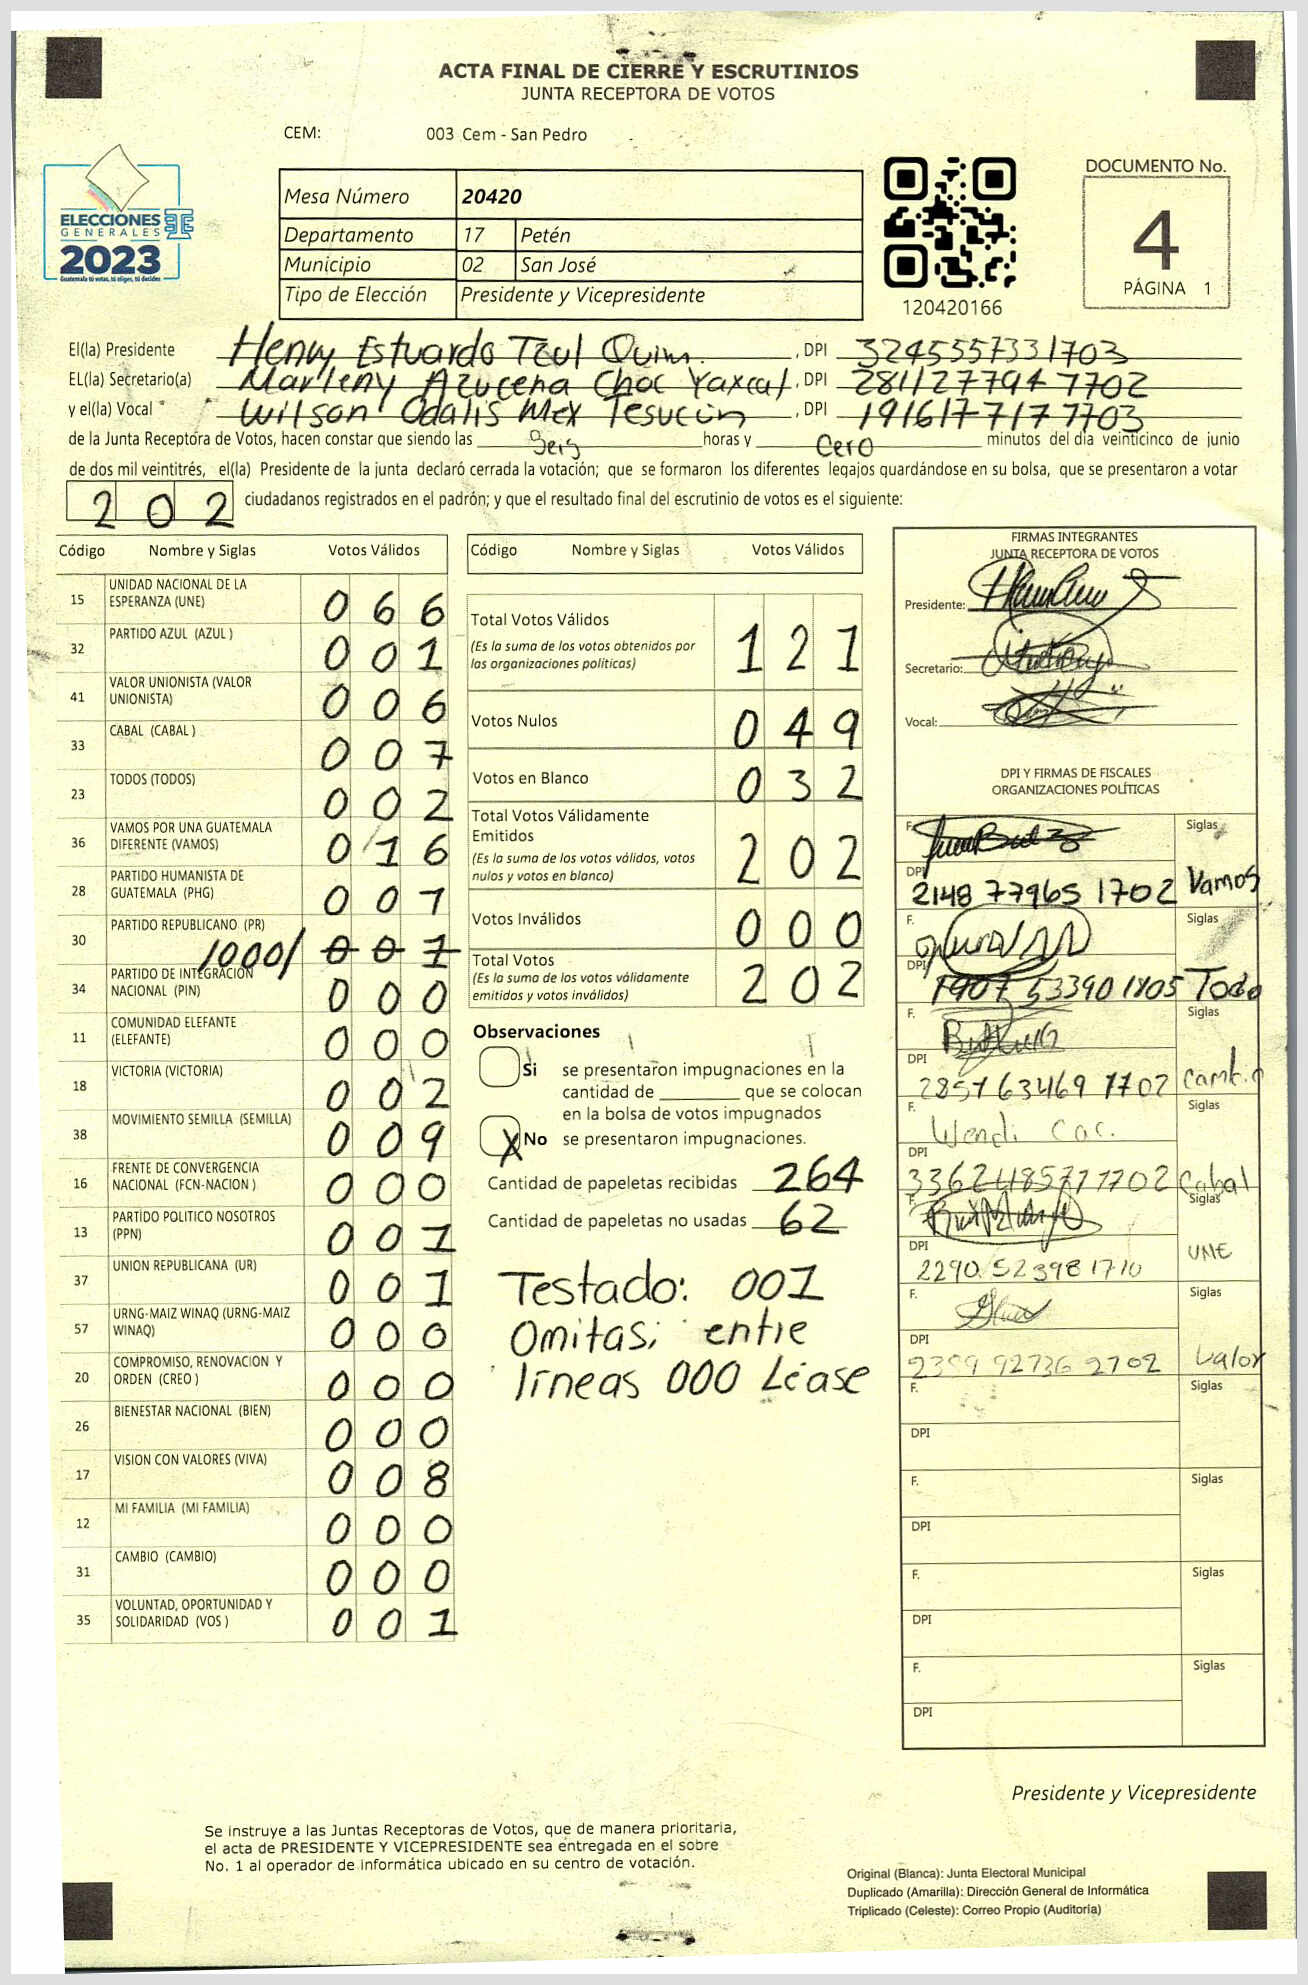 ACTA FINAL DE CIERRE Y ESCRUTINIOS
JUNTA RECEPTORA DE VOTOS
CEM: 003 Cem - San Pedro
ELECCIONES
GENERALES
2023
Guatemala tú votas, tú eliges, tú decides
Mesa Número 20420
Departamento 17 Petén
Municipio 02 San José
Tipo de Elección Presidente y Vicepresidente
120420166
DOCUMENTO No.
4
PÁGINA 1
El(la) Presidente Henry Estuardo Tzul Quim. , DPI 3245557331703
EL(la) Secretario(a) Marleny Azucena Choc Yaxcal , DPI 2811277947702
y el(la) Vocal Wilson Odalis Mex Tesucún , DPI 1916177177703
de la Junta Receptora de Votos, hacen constar que siendo las Seis horas y Cero minutos del día veinticinco de junio
de dos mil veintitrés, el(la) Presidente de la junta declaró cerrada la votación; que se formaron los diferentes legajos quardándose en su bolsa, que se presentaron a votar
202 ciudadanos registrados en el padrón; y que el resultado final del escrutinio de votos es el siguiente:
Código Nombre y Siglas Votos Válidos
15 UNIDAD NACIONAL DE LA ESPERANZA (UNE) 066
32 PARTIDO AZUL (AZUL ) 001
41 VALOR UNIONISTA (VALOR UNIONISTA) 006
33 CABAL (CABAL ) 007
23 TODOS (TODOS) 002
36 VAMOS POR UNA GUATEMALA DIFERENTE (VAMOS) 016
28 PARTIDO HUMANISTA DE GUATEMALA (PHG) 001
30 PARTIDO REPUBLICANO (PR) /000/ 001
34 PARTIDO DE INTEGRACION NACIONAL (PIN) 000
11 COMUNIDAD ELEFANTE (ELEFANTE) 000
18 VICTORIA (VICTORIA) 002
38 MOVIMIENTO SEMILLA (SEMILLA) 009
16 FRENTE DE CONVERGENCIA NACIONAL (FCN-NACION ) 000
13 PARTIDO POLITICO NOSOTROS (PPN) 001
37 UNION REPUBLICANA (UR) 001
57 URNG-MAIZ WINAQ (URNG-MAIZ WINAQ) 000
20 COMPROMISO, RENOVACION Y ORDEN (CREO ) 000
26 BIENESTAR NACIONAL (BIEN) 000
17 VISION CON VALORES (VIVA) 008
12 MI FAMILIA (MI FAMILIA) 000
31 CAMBIO (CAMBIO) 000
35 VOLUNTAD, OPORTUNIDAD Y SOLIDARIDAD (VOS ) 001
Código Nombre y Siglas Votos Válidos
Total Votos Válidos 121
(Es la suma de los votos obtenidos por
las organizaciones políticas)
Votos Nulos 049
Votos en Blanco 032
Total Votos Válidamente
Emitidos 202
(Es la suma de los votos válidos, votos
nulos y votos en blanco)
Votos Inválidos 000
Total Votos 202
(Es la suma de los votos válidamente
emitidos y votos inválidos)
Observaciones
Si se presentaron impugnaciones en la
cantidad de ________ que se colocan
en la bolsa de votos impugnados
X No se presentaron impugnaciones.
Cantidad de papeletas recibidas 264
Cantidad de papeletas no usadas 62
Testado: 001
Omitasi entre
líneas 000 Léase
FIRMAS INTEGRANTES
JUNTA RECEPTORA DE VOTOS
Presidente:
Secretario:
Vocal:
DPI Y FIRMAS DE FISCALES
ORGANIZACIONES POLÍTICAS
F. Siglas
DPI 2148 77965 1702 Vamos
F. Siglas
DPI 1907 53390 1805 Todo
F. Siglas
DPI 2857 63469 1702 Camb.o
F. Wendi Cac. Siglas
DPI 3362485771702 Cabal
F. Siglas
DPI 2290 52398 1710 UNE
F. Siglas
DPI 2399 92736 2702 Valor
F. Siglas
DPI
F. Siglas
DPI
F. Siglas
DPI
F. Siglas
DPI
Presidente y Vicepresidente
Se instruye a las Juntas Receptoras de Votos, que de manera prioritaria,
el acta de PRESIDENTE Y VICEPRESIDENTE sea entregada en el sobre
No. 1 al operador de informática ubicado en su centro de votación.
Original (Blanca): Junta Electoral Municipal
Duplicado (Amarilla): Dirección General de Informática
Triplicado (Celeste): Correo Propio (Auditoría)